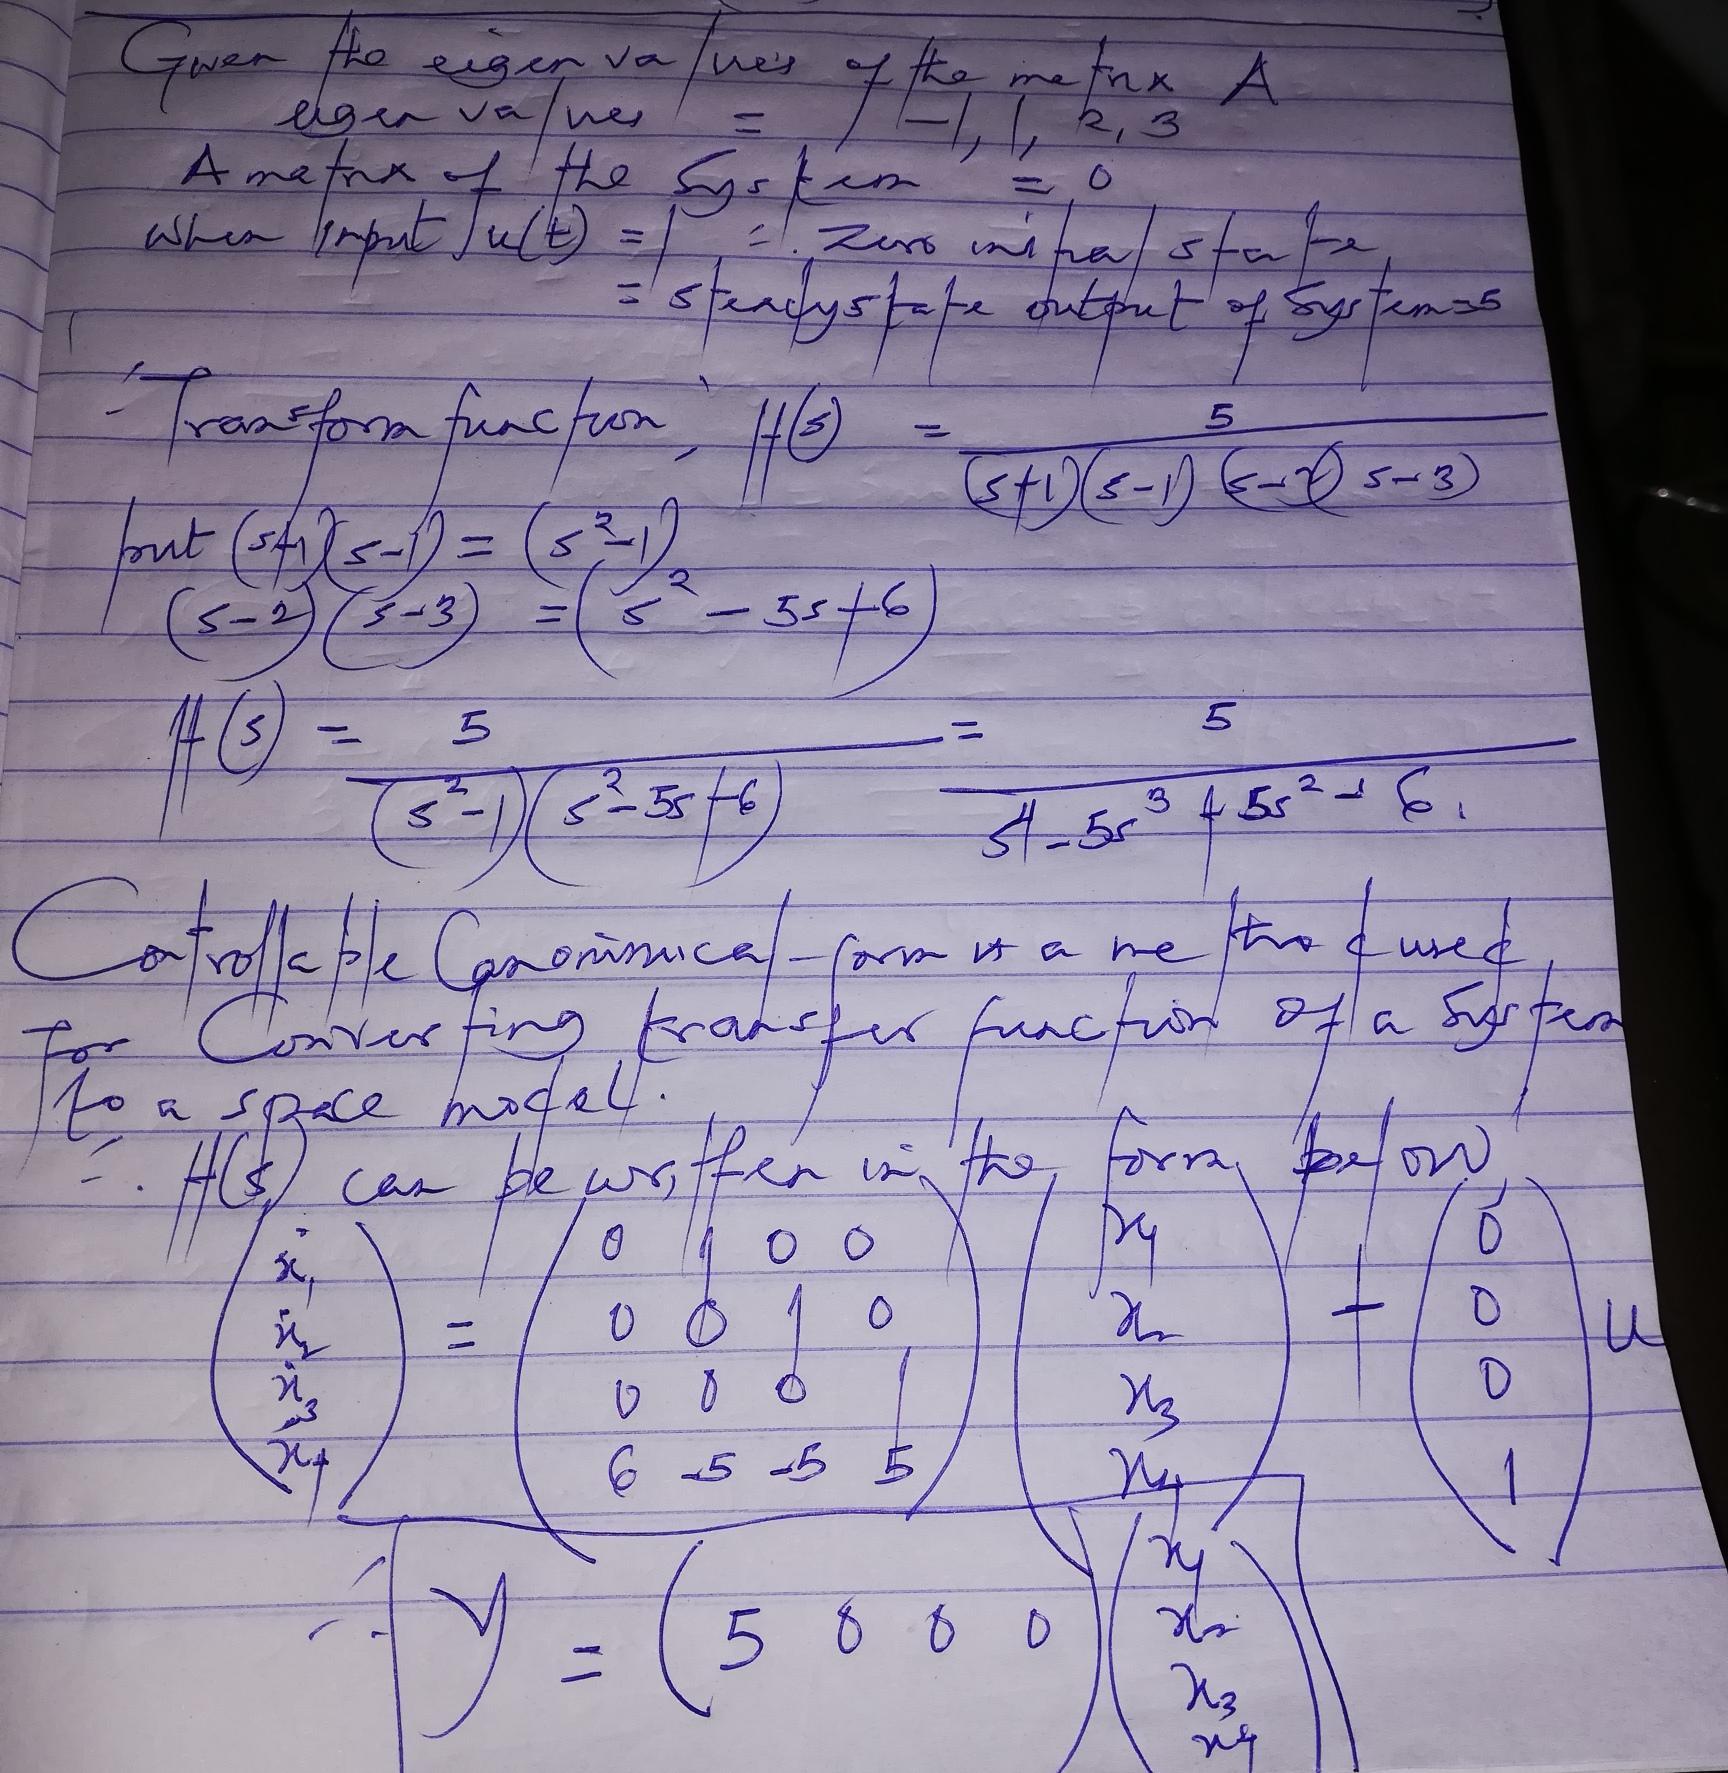 Given the eigen values of the matrix A
eigen values = -1, 1, 2, 3
A matrix of the System = 0
when Input u(t) = 1 = . Zero initial state
= steady state output of System = 5
∴ Transform function, H(s) = 5 / (s+1)(s-1)(s-2)(s-3)
put (s+1)(s-1) = (s²-1)
(s-2)(s-3) = (s² - 5s + 6)
H(s) = 5 / (s²-1)(s²-5s+6) = 5 / s⁴-5s³+5s²- 6.
Controllable Canonimical-form is a method used
for Converting transfer function of a System
to a space model.
∴ H(s) can be written in the form below
ẋ₁ = 0 1 0 0 x₁ + 0
ẋ₂ 0 0 1 0 x₂ 0 u
ẋ₃ 0 0 0 1 x₃ 0
x₄ 6 -5 -5 5 x₄ 1
∴ y = (5 0 0 0) x₁
x₂
x₃
x₄